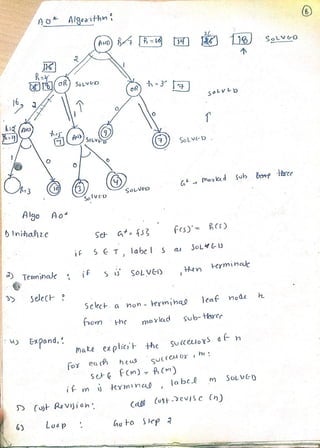 AO* Algorithm:
6
AND h=7 h=10 14 18 SOLVED
2 1
h=4
OR SOLVED OR h=3 7
SOLVED
2 1 0 0
AND h=5 7 AND SOLVED 9 7 SOLVED
1 0 0 0
h=3 10 3 4 SOLVED
SOLVED
G* → Marked sub tree
Algo AO*
1) Initialize Set G* = {s} f(s) = h(s)
if s ∈ T, label s as SOLVED
2) Terminate : if s is SOLVED, then terminate
3) Select : Select a non-terminal leaf node n
from the marked sub-tree
4) Expand : make explicit the successors of n
For each new successor, m:
set f(m) = h(m)
if m is terminal, label m SOLVED
5) Cost Revision : Call cost-revise (n)
6) Loop : Go to Step 2